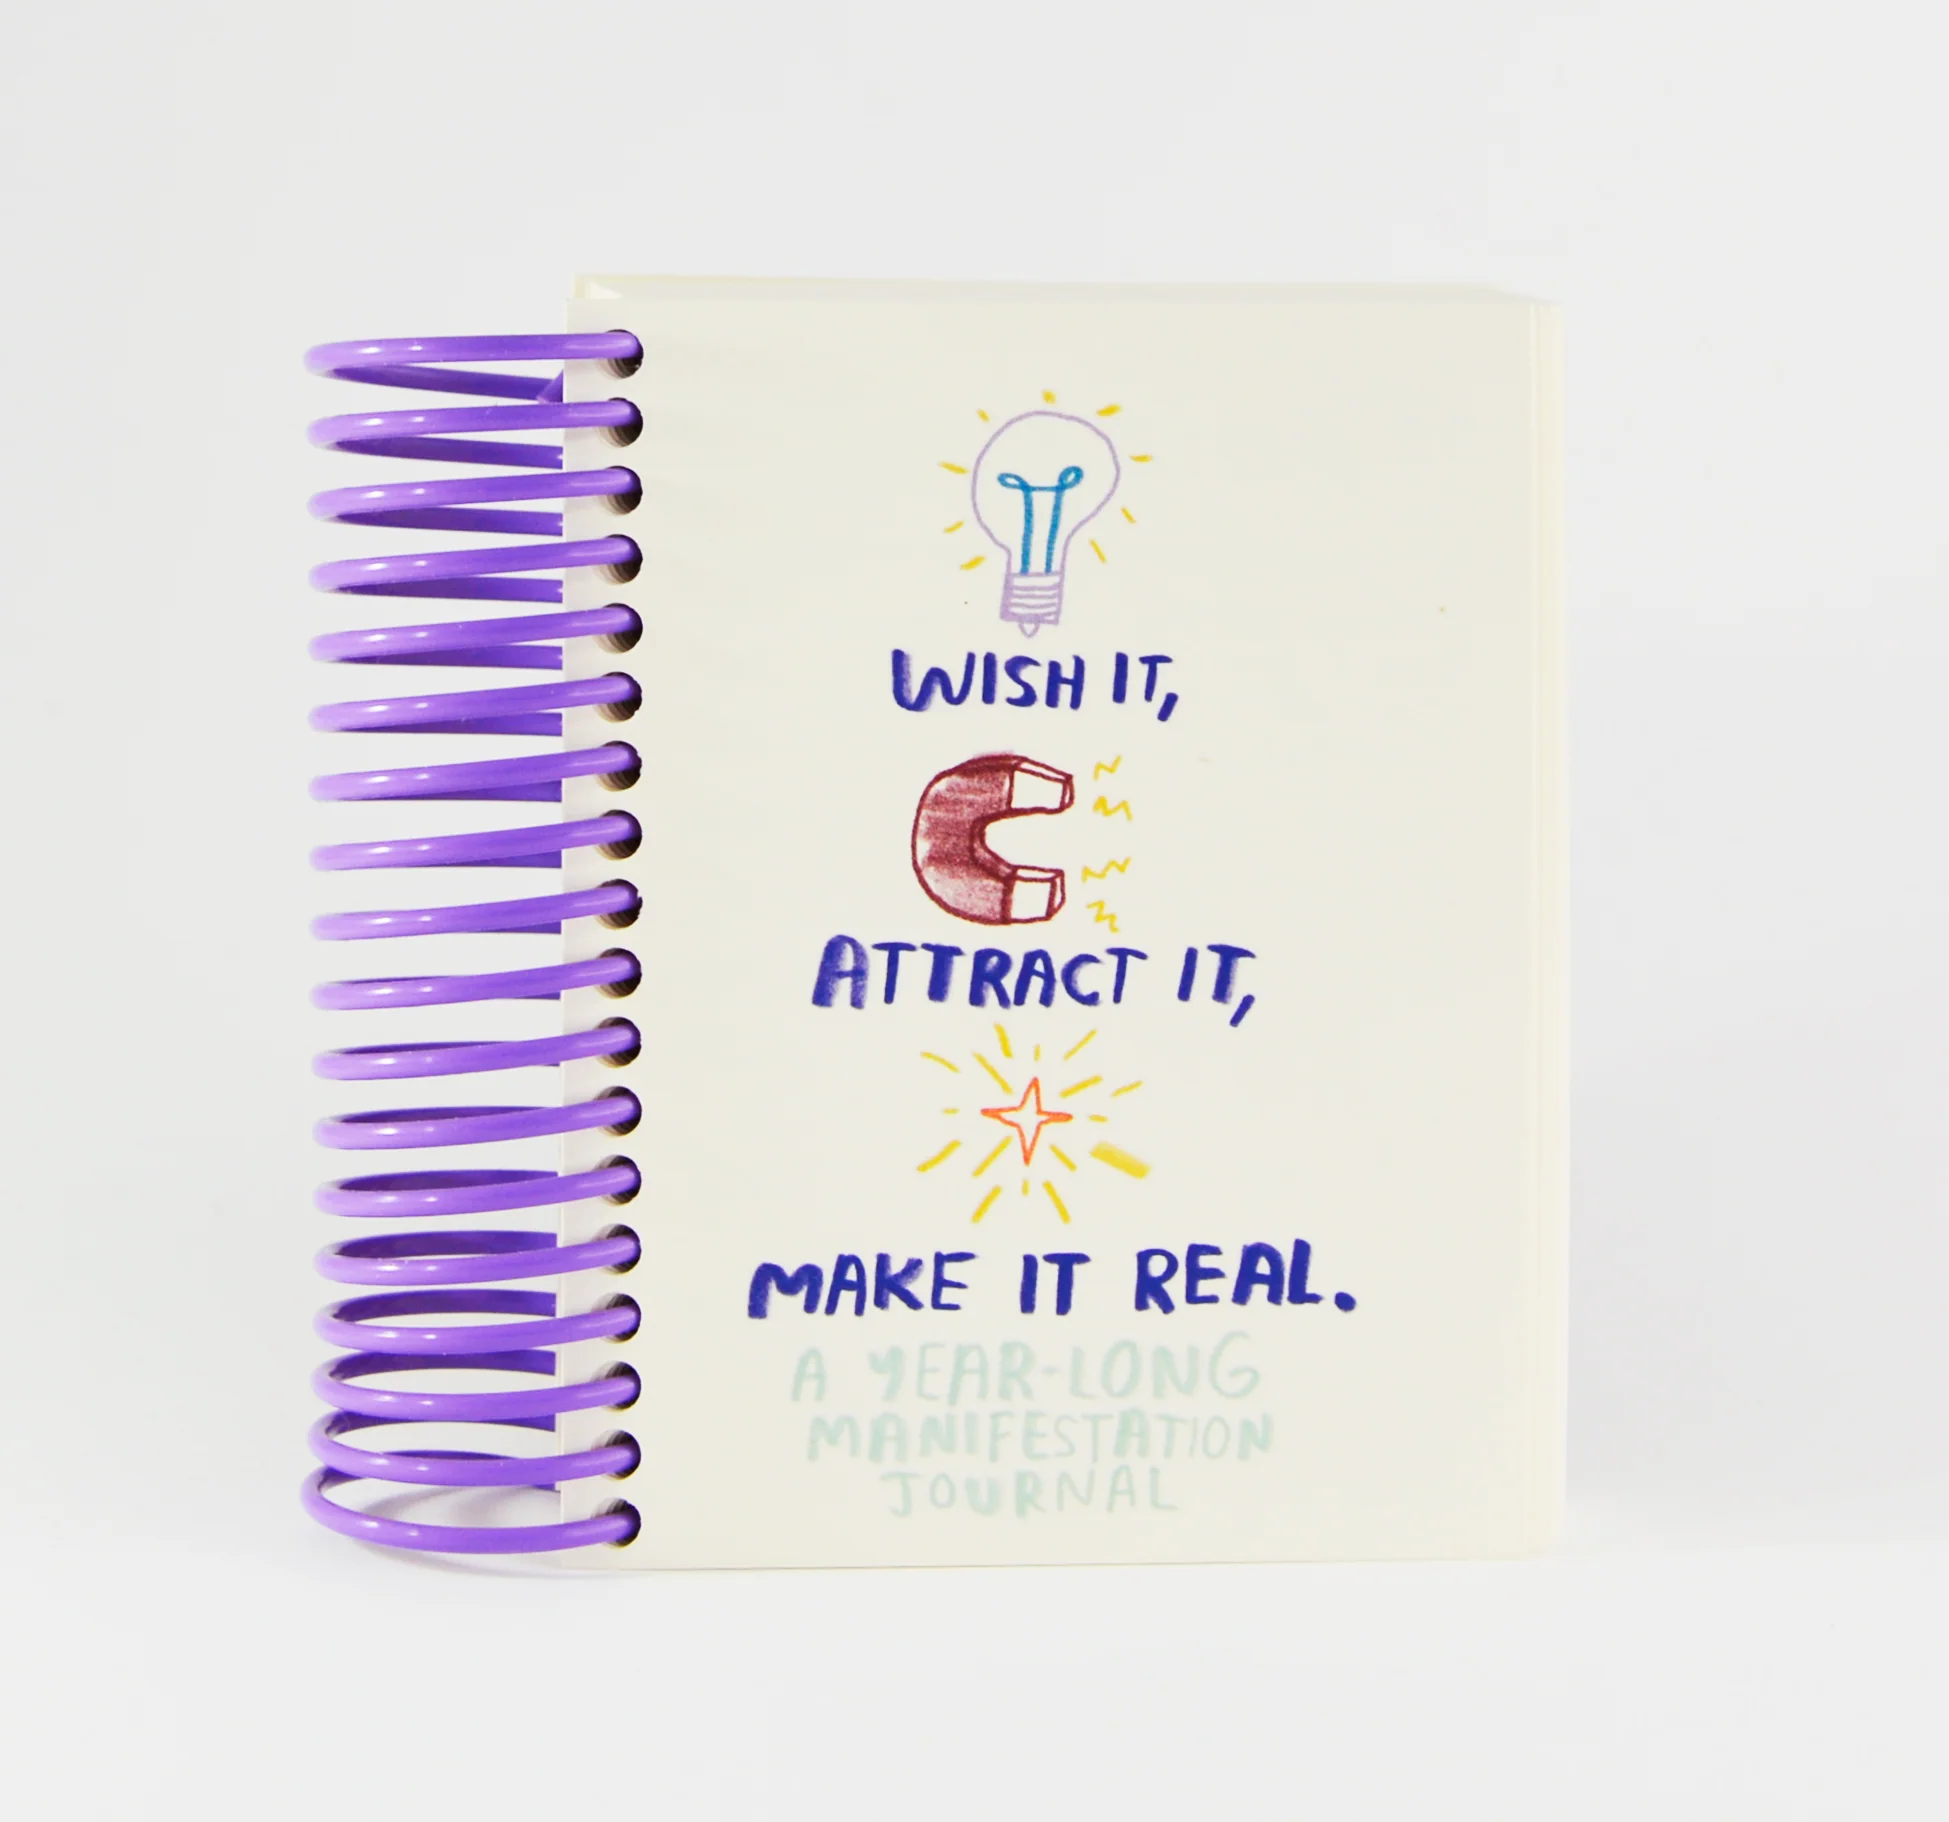 WISH IT,
ATTRACT IT,
MAKE IT REAL.
A YEAR-LONG
MANIFESTATION
JOURNAL